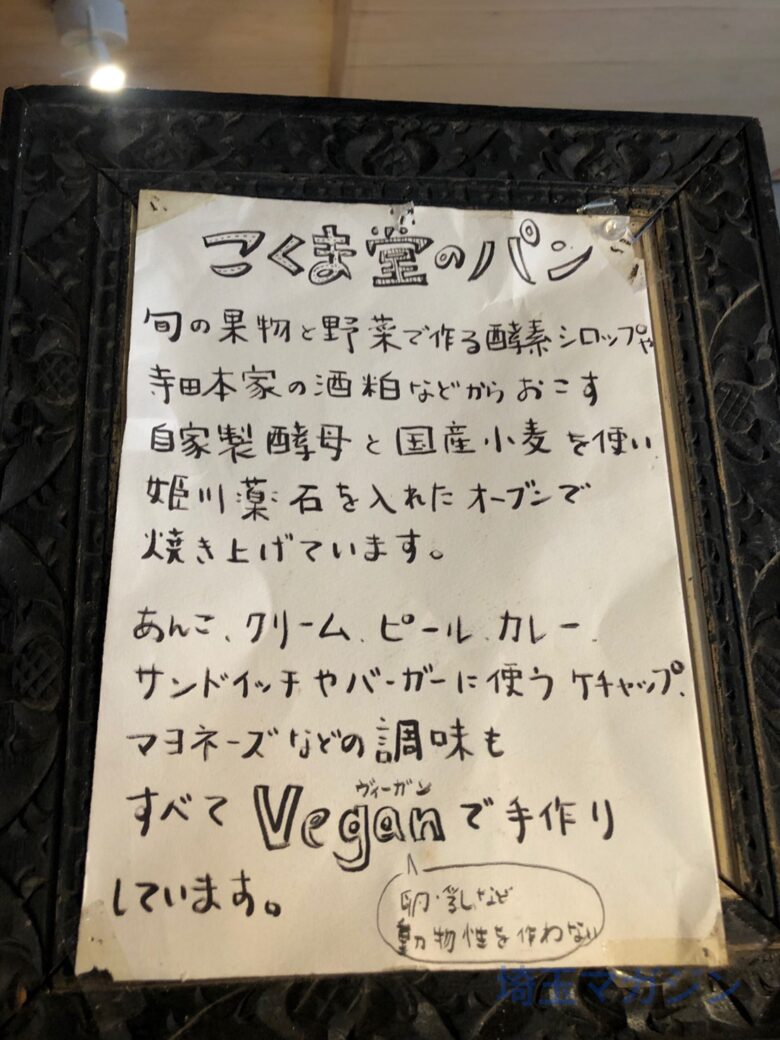 こくま堂のパン
旬の果物と野菜で作る酵素シロップや
寺田本家の酒粕などからおこす
自家製酵母と国産小麦を使い
姫川薬石を入れたオーブンで
焼き上げています。
あんこ、クリーム、ピール、カレー、
サンドイッチやバーガーに使うケチャップ、
マヨネーズなどの調味も
ヴィーガン
すべてVeganで手作り
しています。
卵・乳など
動物性を作わない
埼玉マガジン